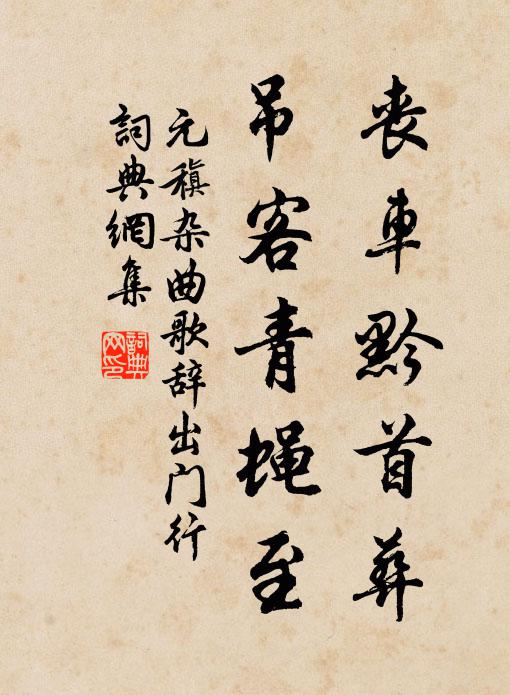 喪車黔首葬
吊客青蝇至
元稹杂曲歌辞出门行
詞典網集
詞典网印